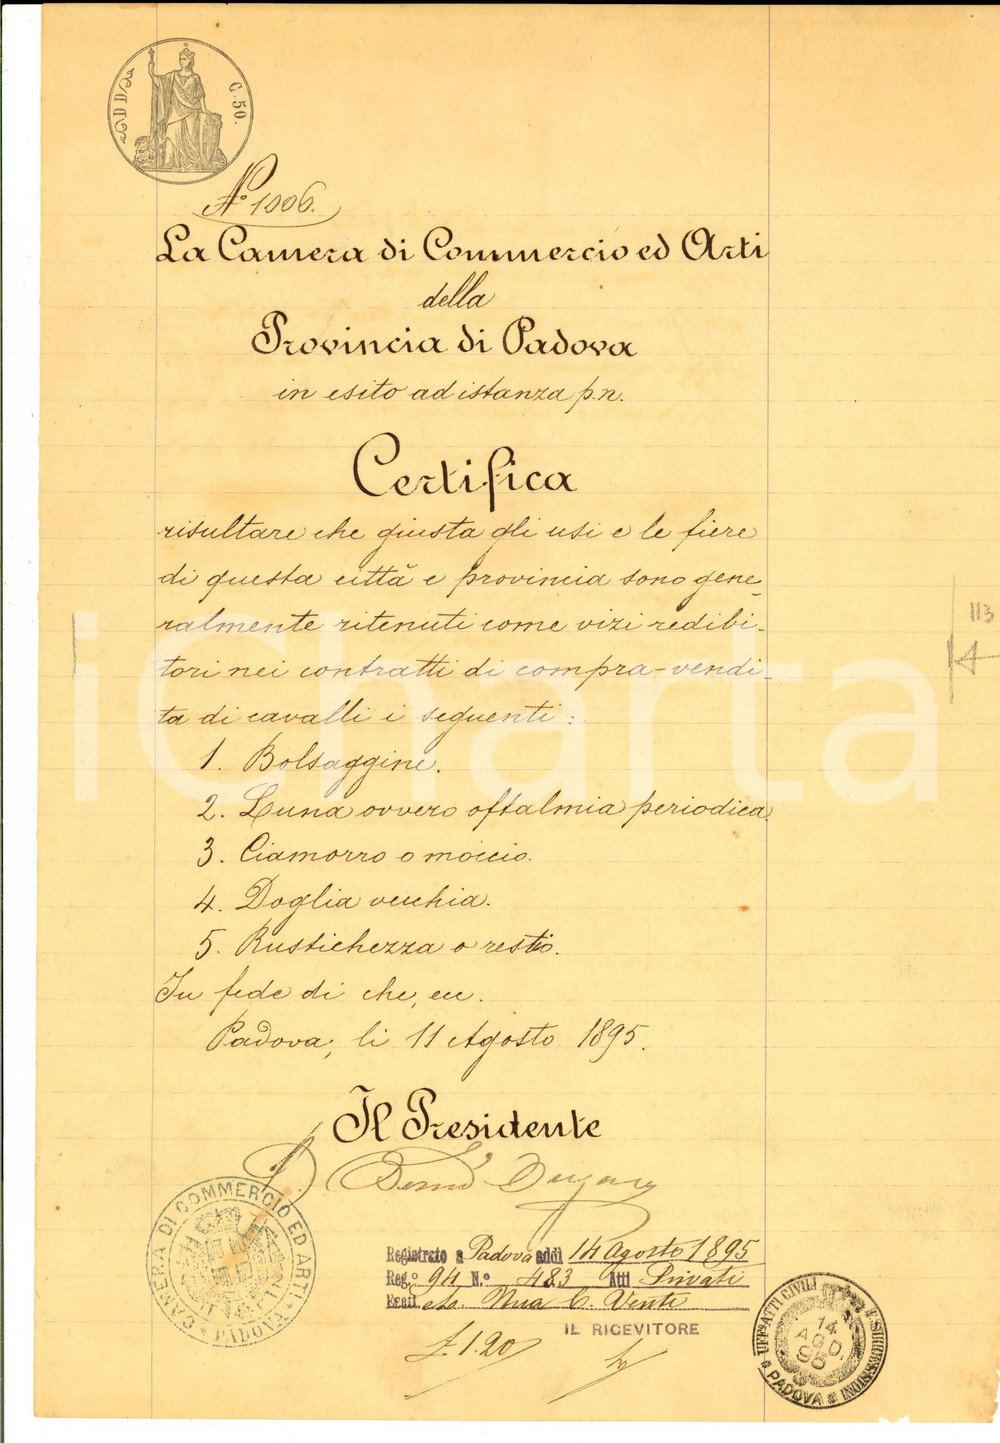 C. 50.
N.º 1006.
La Camera di Commercio ed Arti
della
Provincia di Padova
in esito ad istanza p.n.
Certifica
risultare che giusta gli usi e le fiere
di questa città e provincia sono gene-
ralmente ritenuti come vizi redibi-
tori nei contratti di compra-vendi-
ta di cavalli i seguenti:
1. Bolsaggine.
2. Luna ovvero oftalmia periodica.
3. Ciamorro o moccio.
4. Doglia vecchia.
5. Rustichezza o restio.
In fede di che, ecc.
Padova, li 11 Agosto 1895.
Il Presidente
CAMERA DI COMMERCIO ED ARTI
PADOVA
Registrato a Padova addi 14 Agosto 1895
Reg.º 94 N.º 483 Atti Privati
Esatt. Una C. Venti
IL RICEVITORE
£ 1.20
UFF.º ATTI CIVILI E SUCCESSIONI
14
AGO.
95
PADOVA
113
iCharta